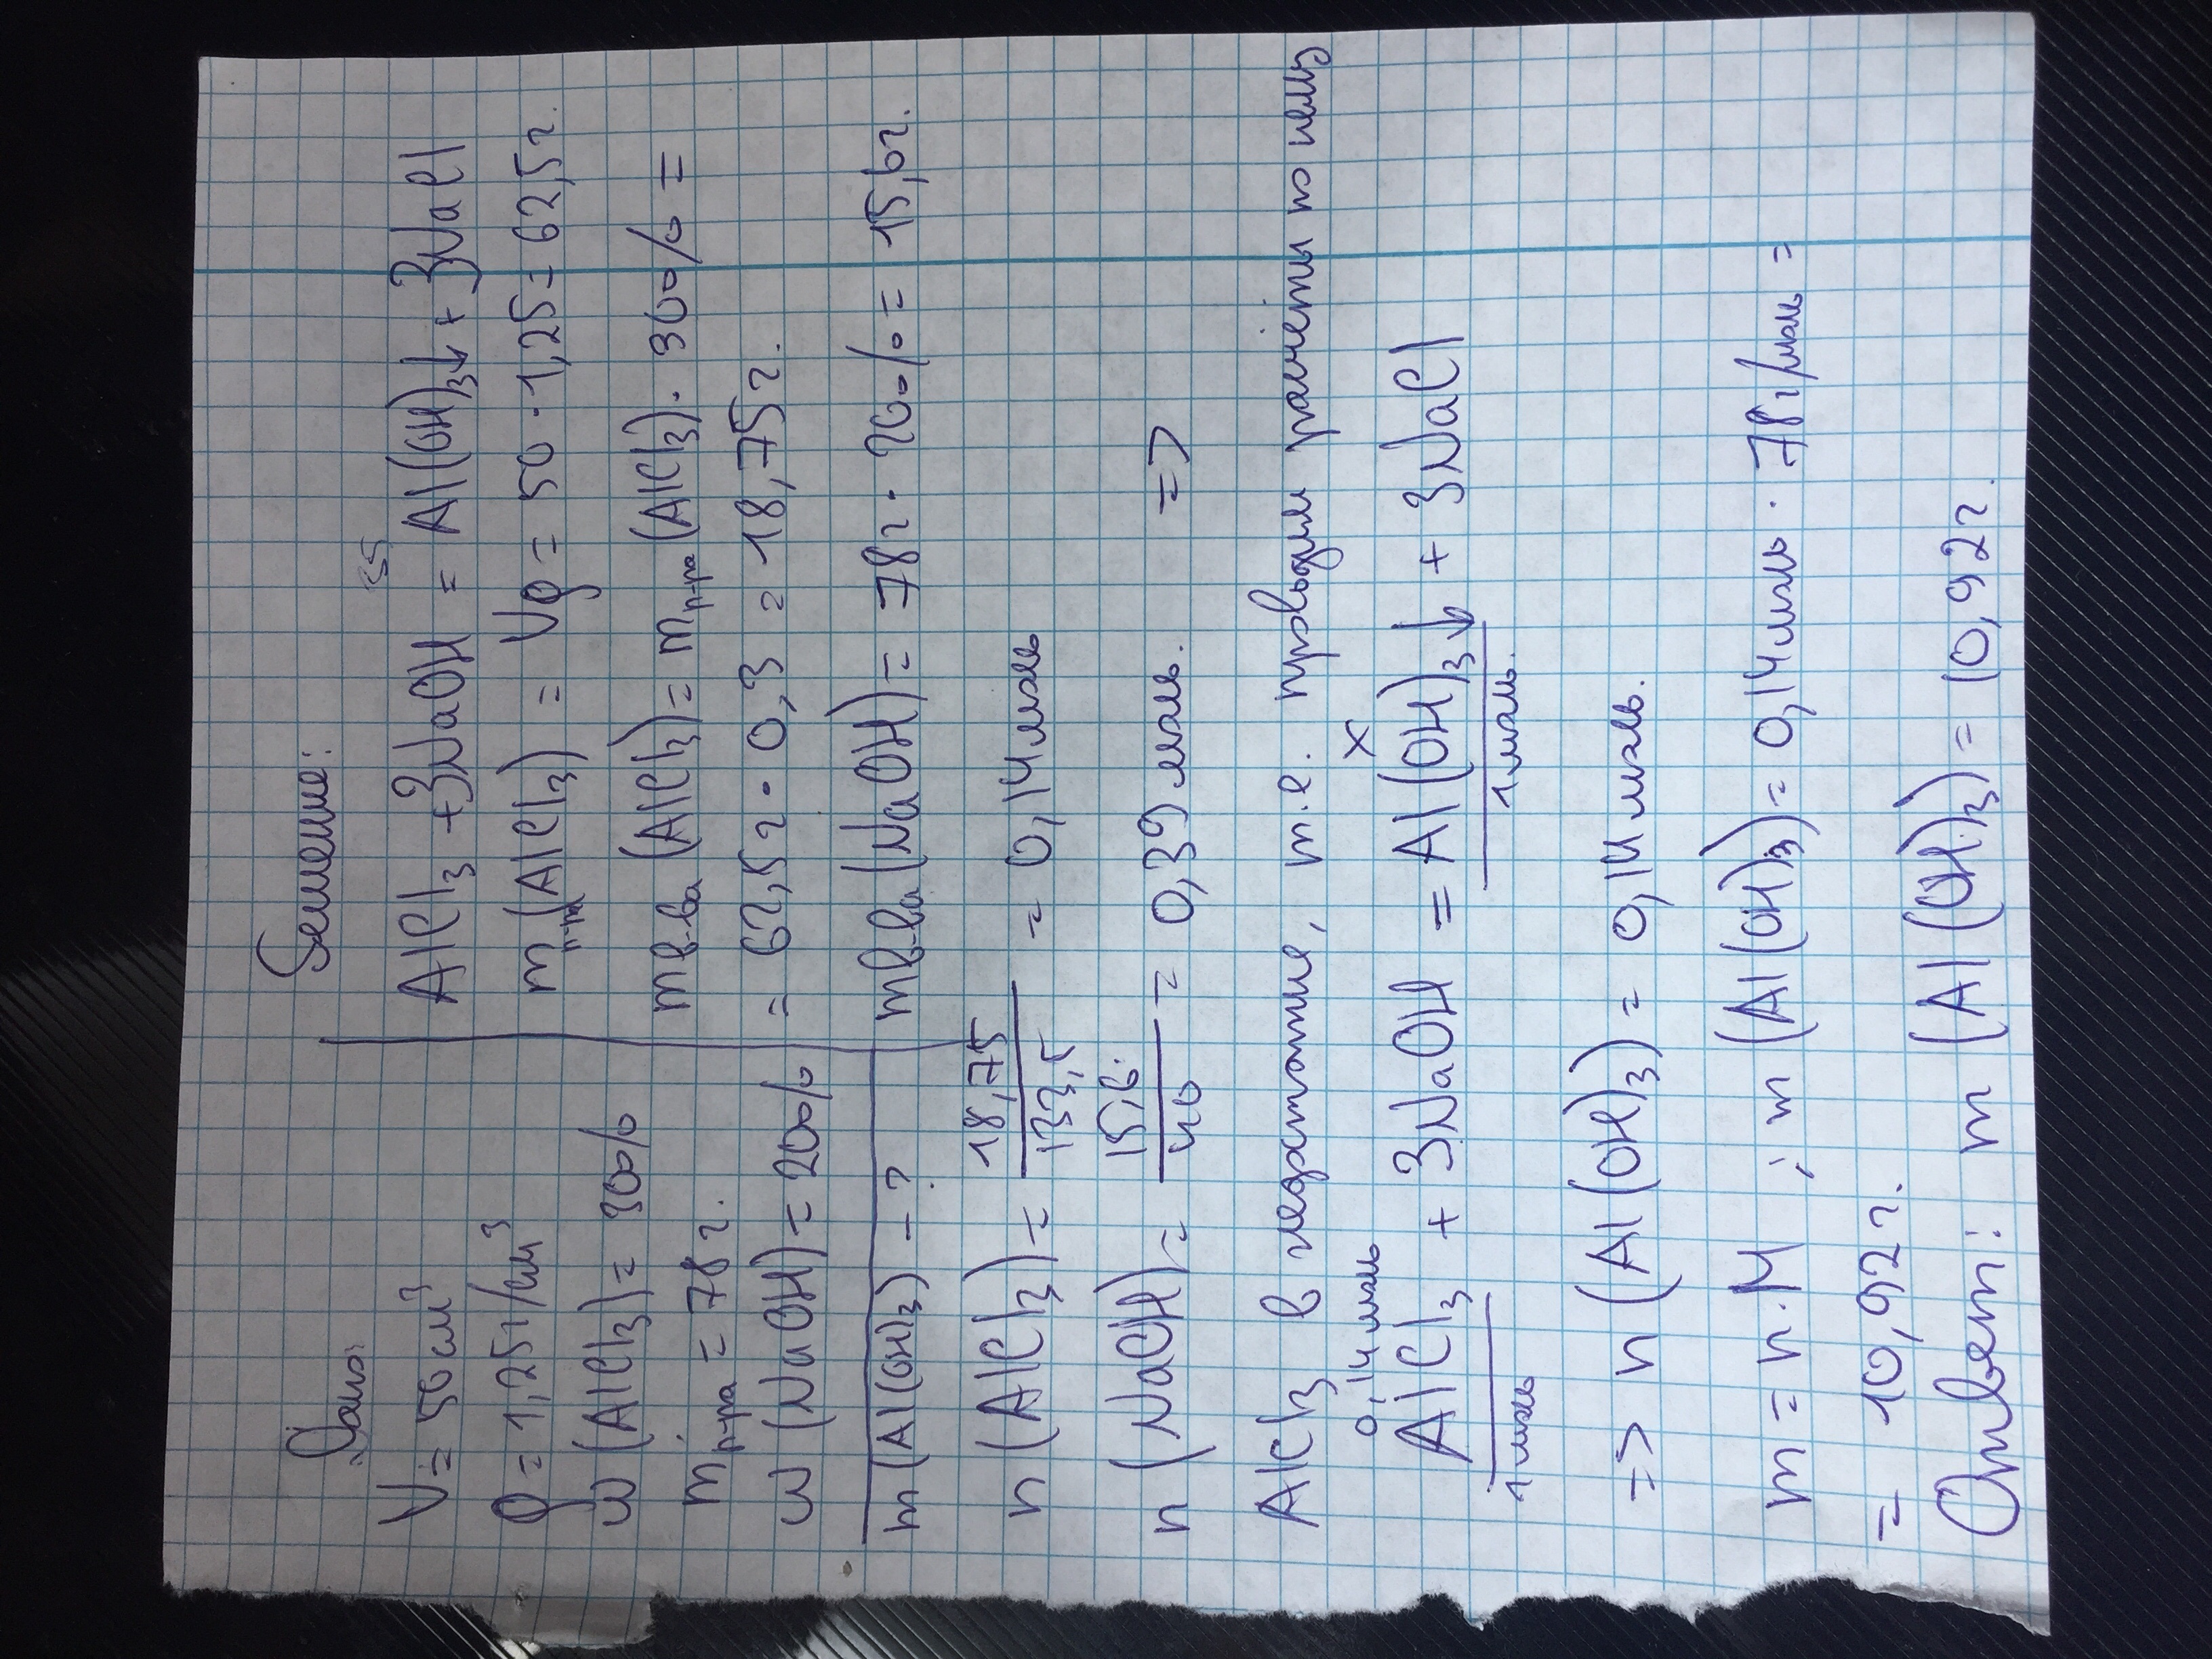 Дано:
V = 50 см³
ρ = 1,25 г/см³
ω (AlCl₃) = 30%
m р-ра = 78 г.
ω (NaOH) = 20%
m (Al(OH)₃) - ?
Решение:
35,5
AlCl₃ + 3NaOH = Al(OH)₃↓ + 3NaCl
m р-ра (AlCl₃) = Vρ = 50 · 1,25 = 62,5 г.
m в-ва (AlCl₃) = m р-ра (AlCl₃) · 30% =
= 62,5 г · 0,3 = 18,75 г.
m в-ва (NaOH) = 78 г · 20% = 15,6 г.
n (AlCl₃) = 18,75 / 133,5 = 0,14 моль
n (NaOH) = 15,6 / 40 = 0,39 моль. =>
AlCl₃ в недостатке, т.е. проводим расчёты по нему
0,14 моль x
AlCl₃ + 3NaOH = Al(OH)₃↓ + 3NaCl
1 моль 1 моль.
=> n (Al(OH)₃) = 0,14 моль.
m = n · M ; m (Al(OH)₃) = 0,14 моль · 78 г/моль =
= 10,92 г.
Ответ: m (Al(OH)₃) = 10,92 г.